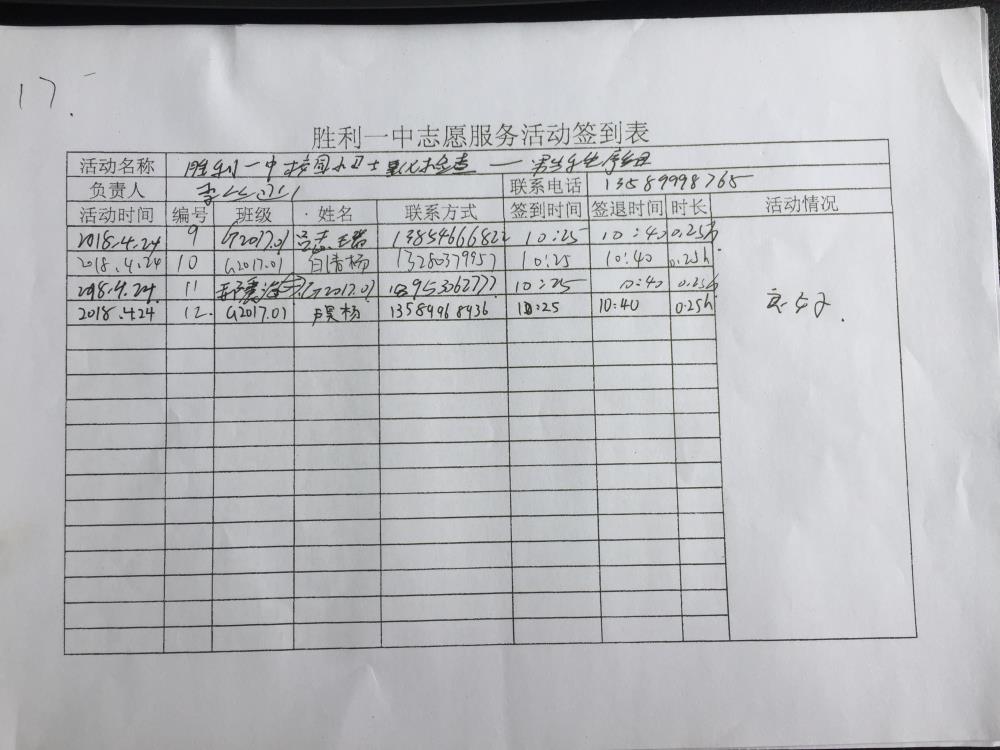 17.
胜利一中志愿服务活动签到表
活动名称 胜利一中校园小卫士 检查 — 男生
负责人 李 联系电话 13589998765
活动时间 编号 班级 姓名 联系方式 签到时间 签退时间 时长 活动情况
2018.4.24 9 G2017.01 13854666822 10:25 10:40 0.25h
2018.4.24 10 G2017.01 白清杨 13280379957 10:25 10:40 0.25h
2018.4.24. 11 G2017.01 10:25 10:40 0.25h 良好.
2018.4.24 12. G2017.01 卢昊杨 13589968936 10:25 10:40 0.25h